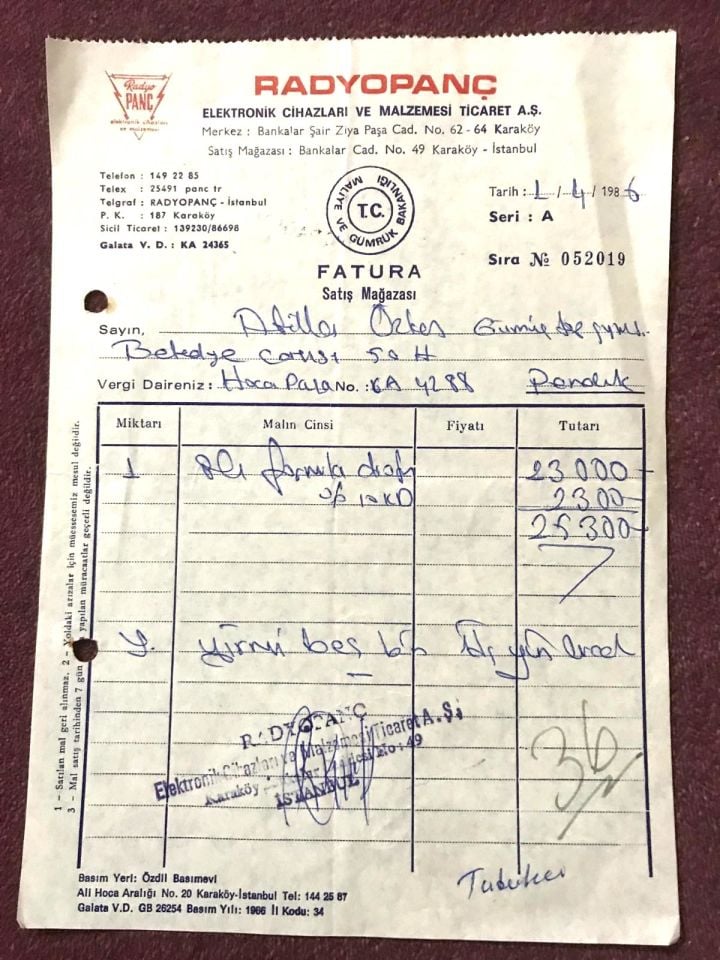 Radyo
PANÇ
elektronik cihazları
ve malzemesi
RADYOPANÇ
ELEKTRONİK CİHAZLARI VE MALZEMESİ TİCARET A.Ş.
Merkez : Bankalar Şair Ziya Paşa Cad. No. 62 - 64 Karaköy
Satış Mağazası : Bankalar Cad. No. 49 Karaköy - İstanbul
Telefon : 149 22 85
Telex : 25491 panc tr
Telgraf : RADYOPANÇ - İstanbul
P. K. : 187 Karaköy
Sicil Ticaret : 139230/86698
Galata V. D. : KA 24365
MALİYE VE GÜMRÜK BAKANLIĞI
T.C.
Tarih : 1 / 4 / 1986
Seri : A
Sıra № 052019
FATURA
Satış Mağazası
Sayın, Atilla
Belediye Çarşısı 50 H
Vergi Daireniz : Hocapaşa No. : KA 4288 Pendik
Miktarı Malın Cinsi Fiyatı Tutarı
1 23 000
% 10 KD 2300
25 300
Y. yirmi beş bin üç yüz liradır
RADYOPANÇ
Elektronik Cihazları ve Malzemesi Ticaret A.Ş.
Karaköy No : 49
İSTANBUL
36
1 – Satılan mal geri alınmaz. 2 – Yoldaki arızalar için müessesemiz mesul değildir.
3 – Mal satış tarihinden 7 gün yapılan müracaatlar geçerli değildir.
Basım Yeri: Özdil Basımevi
Ali Hoca Aralığı No. 20 Karaköy-İstanbul Tel: 144 25 87
Galata V.D. GB 26254 Basım Yılı: 1986 İl Kodu: 34